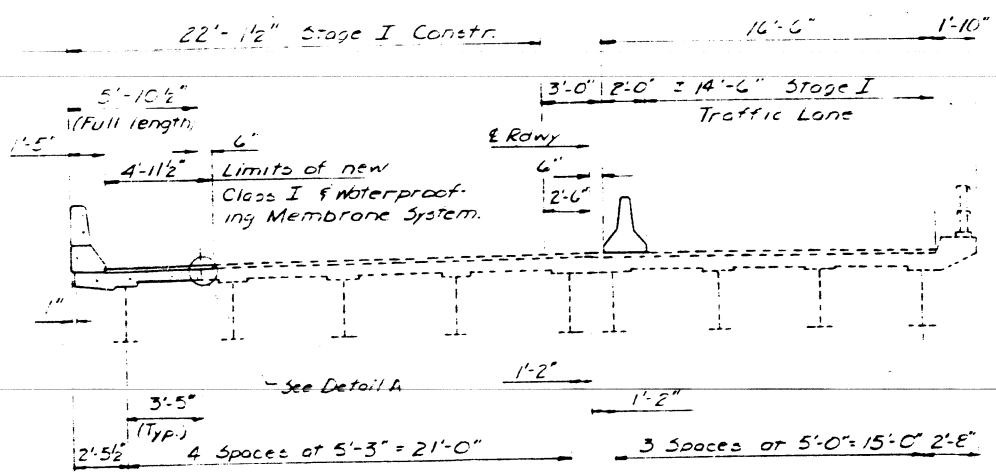 22'-1½" Stage I Constr.
16'-6"
1'-10"
5'-10½"
(Full length)
3'-0"
2'-0"
± 14'-6" Stage I
Traffic Lane
1'-5"
6"
℄ Rdwy
4'-11½"
Limits of new
Class I & Waterproof-
ing Membrane System.
6"
2'-6"
1"
See Detail A
1'-2"
1'-2"
3'-5"
(Typ.)
2'-5½"
4 Spaces at 5'-3" = 21'-0"
3 Spaces at 5'-0" = 15'-0"
2'-8"